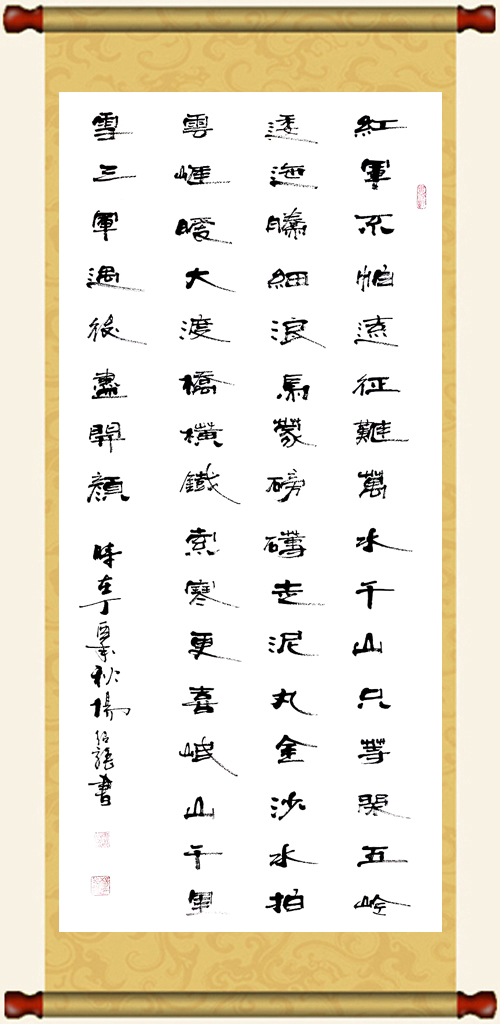 紅軍不怕遠征難萬水千山只等閑五岭
逶迤騰細浪烏蒙磅礴走泥丸金沙水拍
雲崕暖大渡橋橫鐵索寒更喜岷山千里
雪三軍過後盡開顏
時在丁酉秋楊書